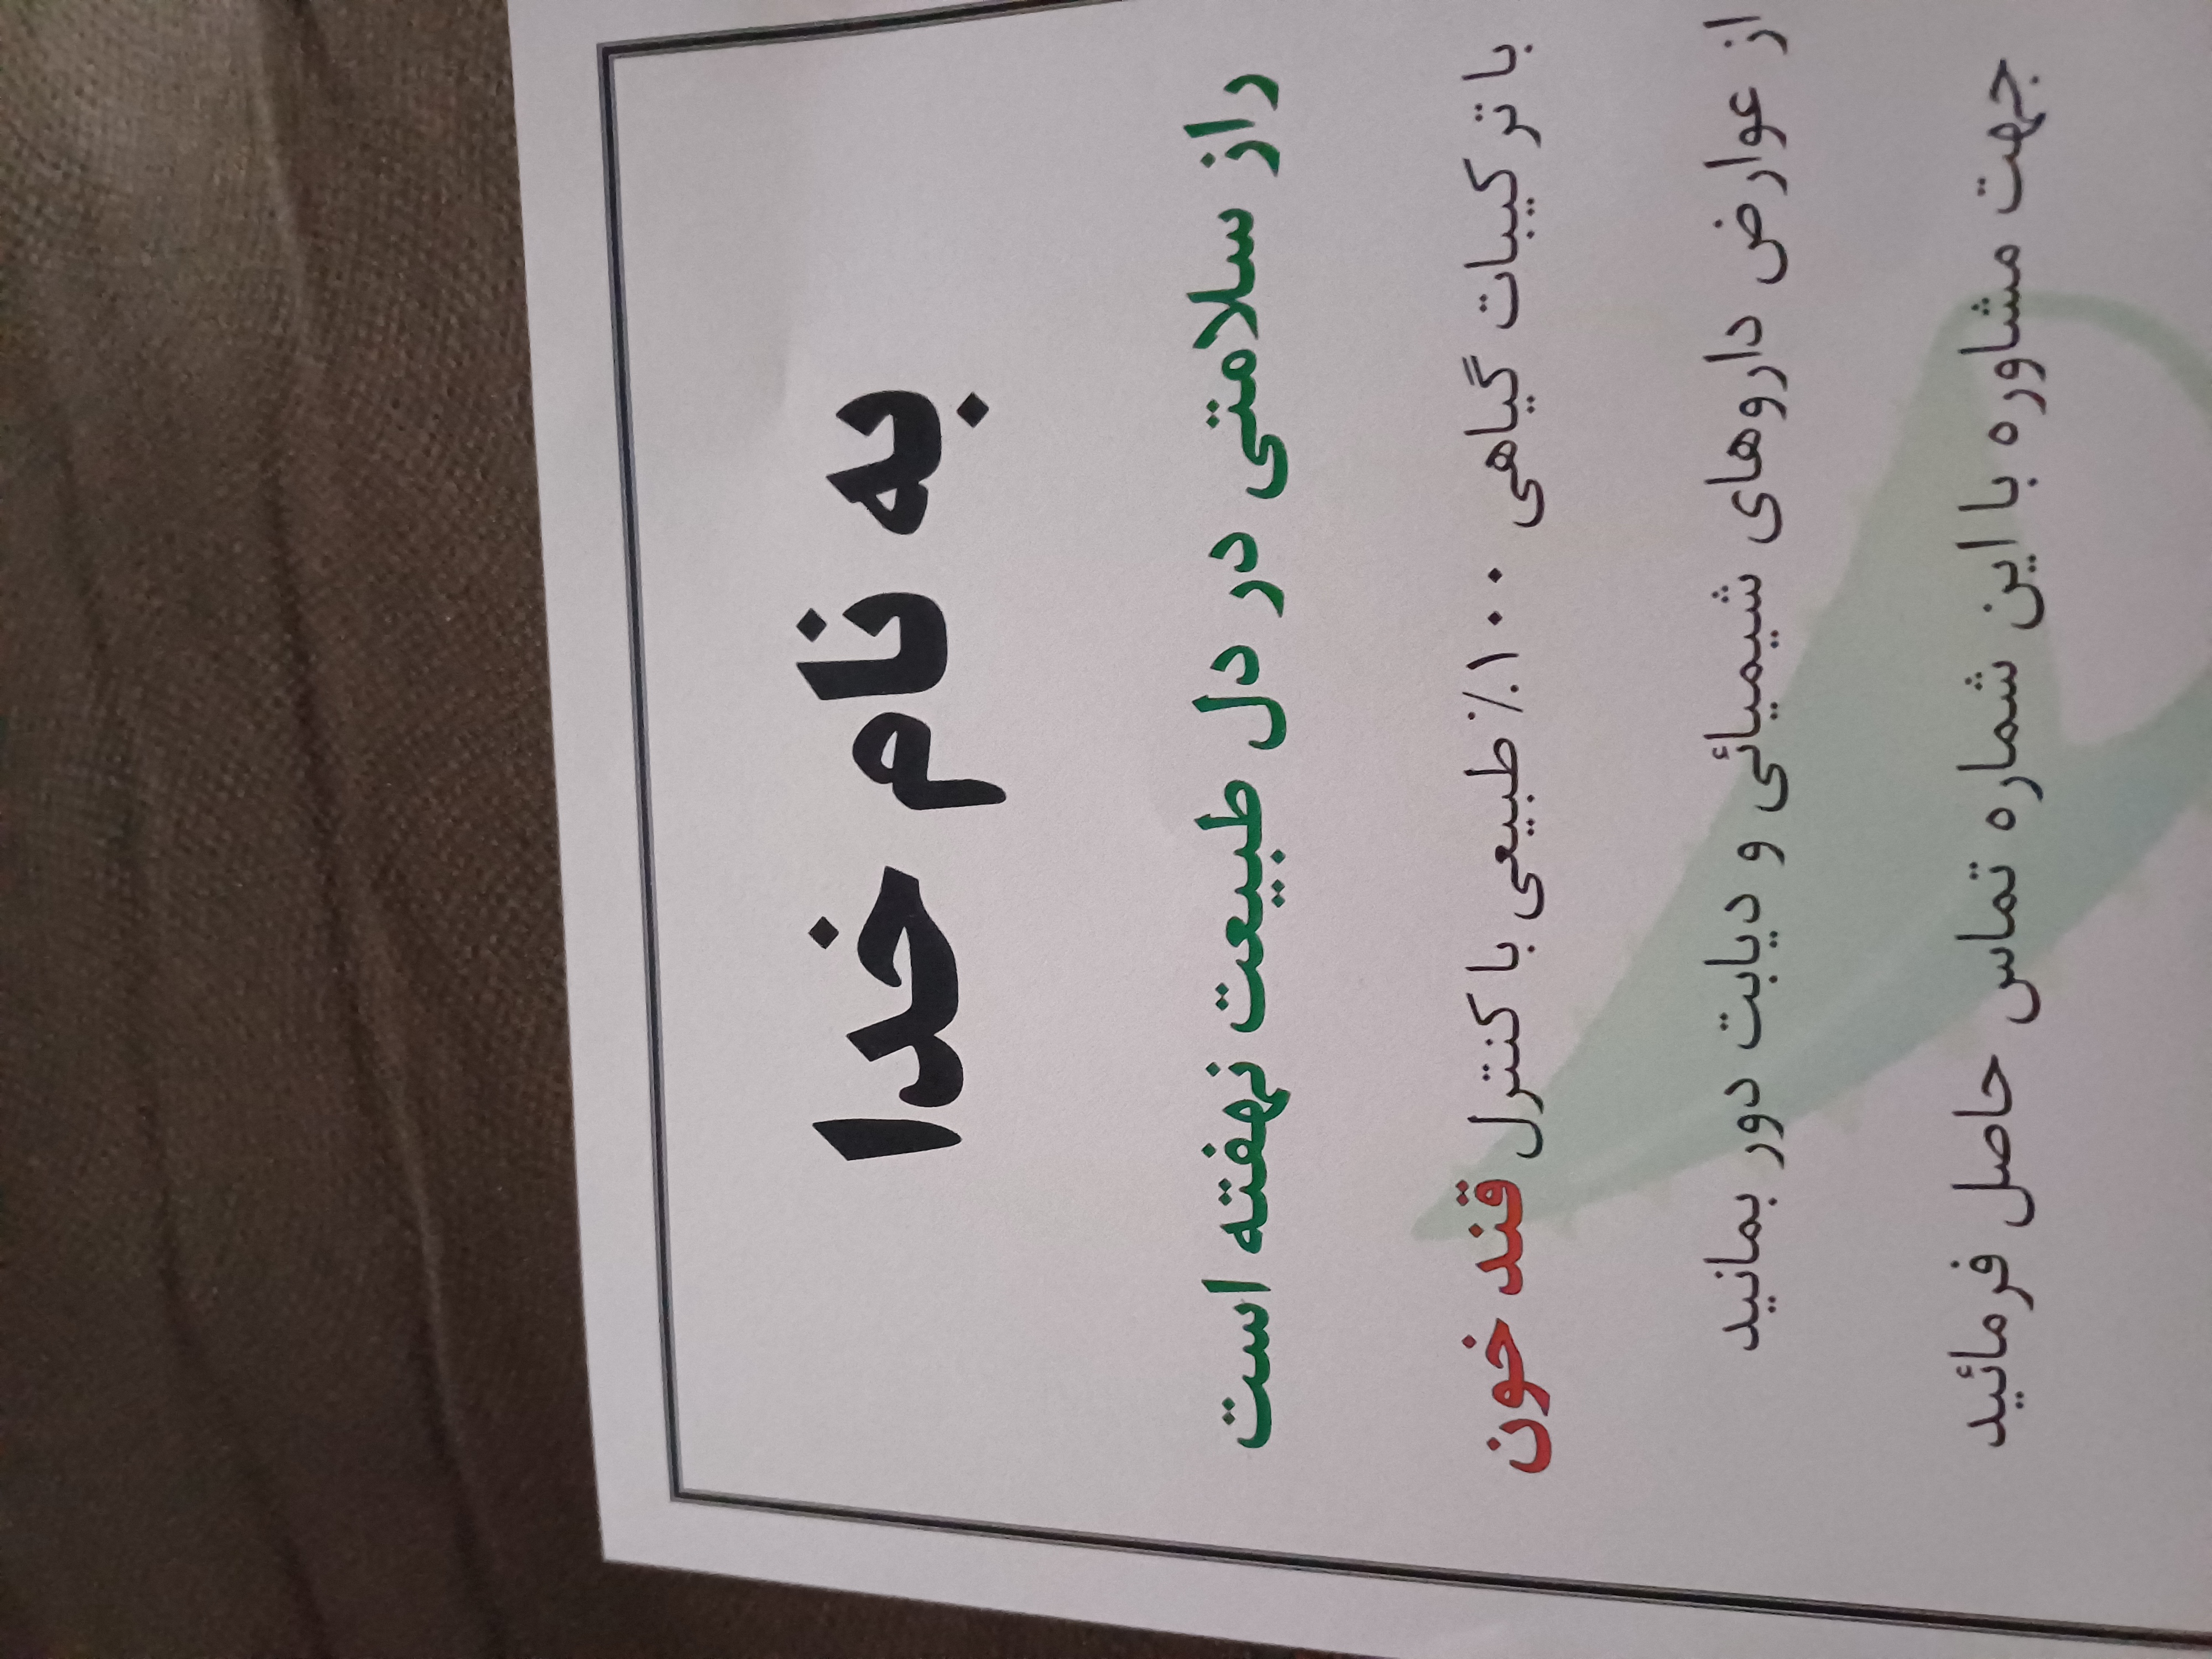 به نام خدا
راز سلامتی در دل طبیعت نهفته است
با ترکیبات گیاهی ۱۰۰٪ طبیعی با کنترل قند خون
از عوارض داروهای شیمیائی و دیابت دور بمانید
جهت مشاوره با این شماره تماس حاصل فرمائید